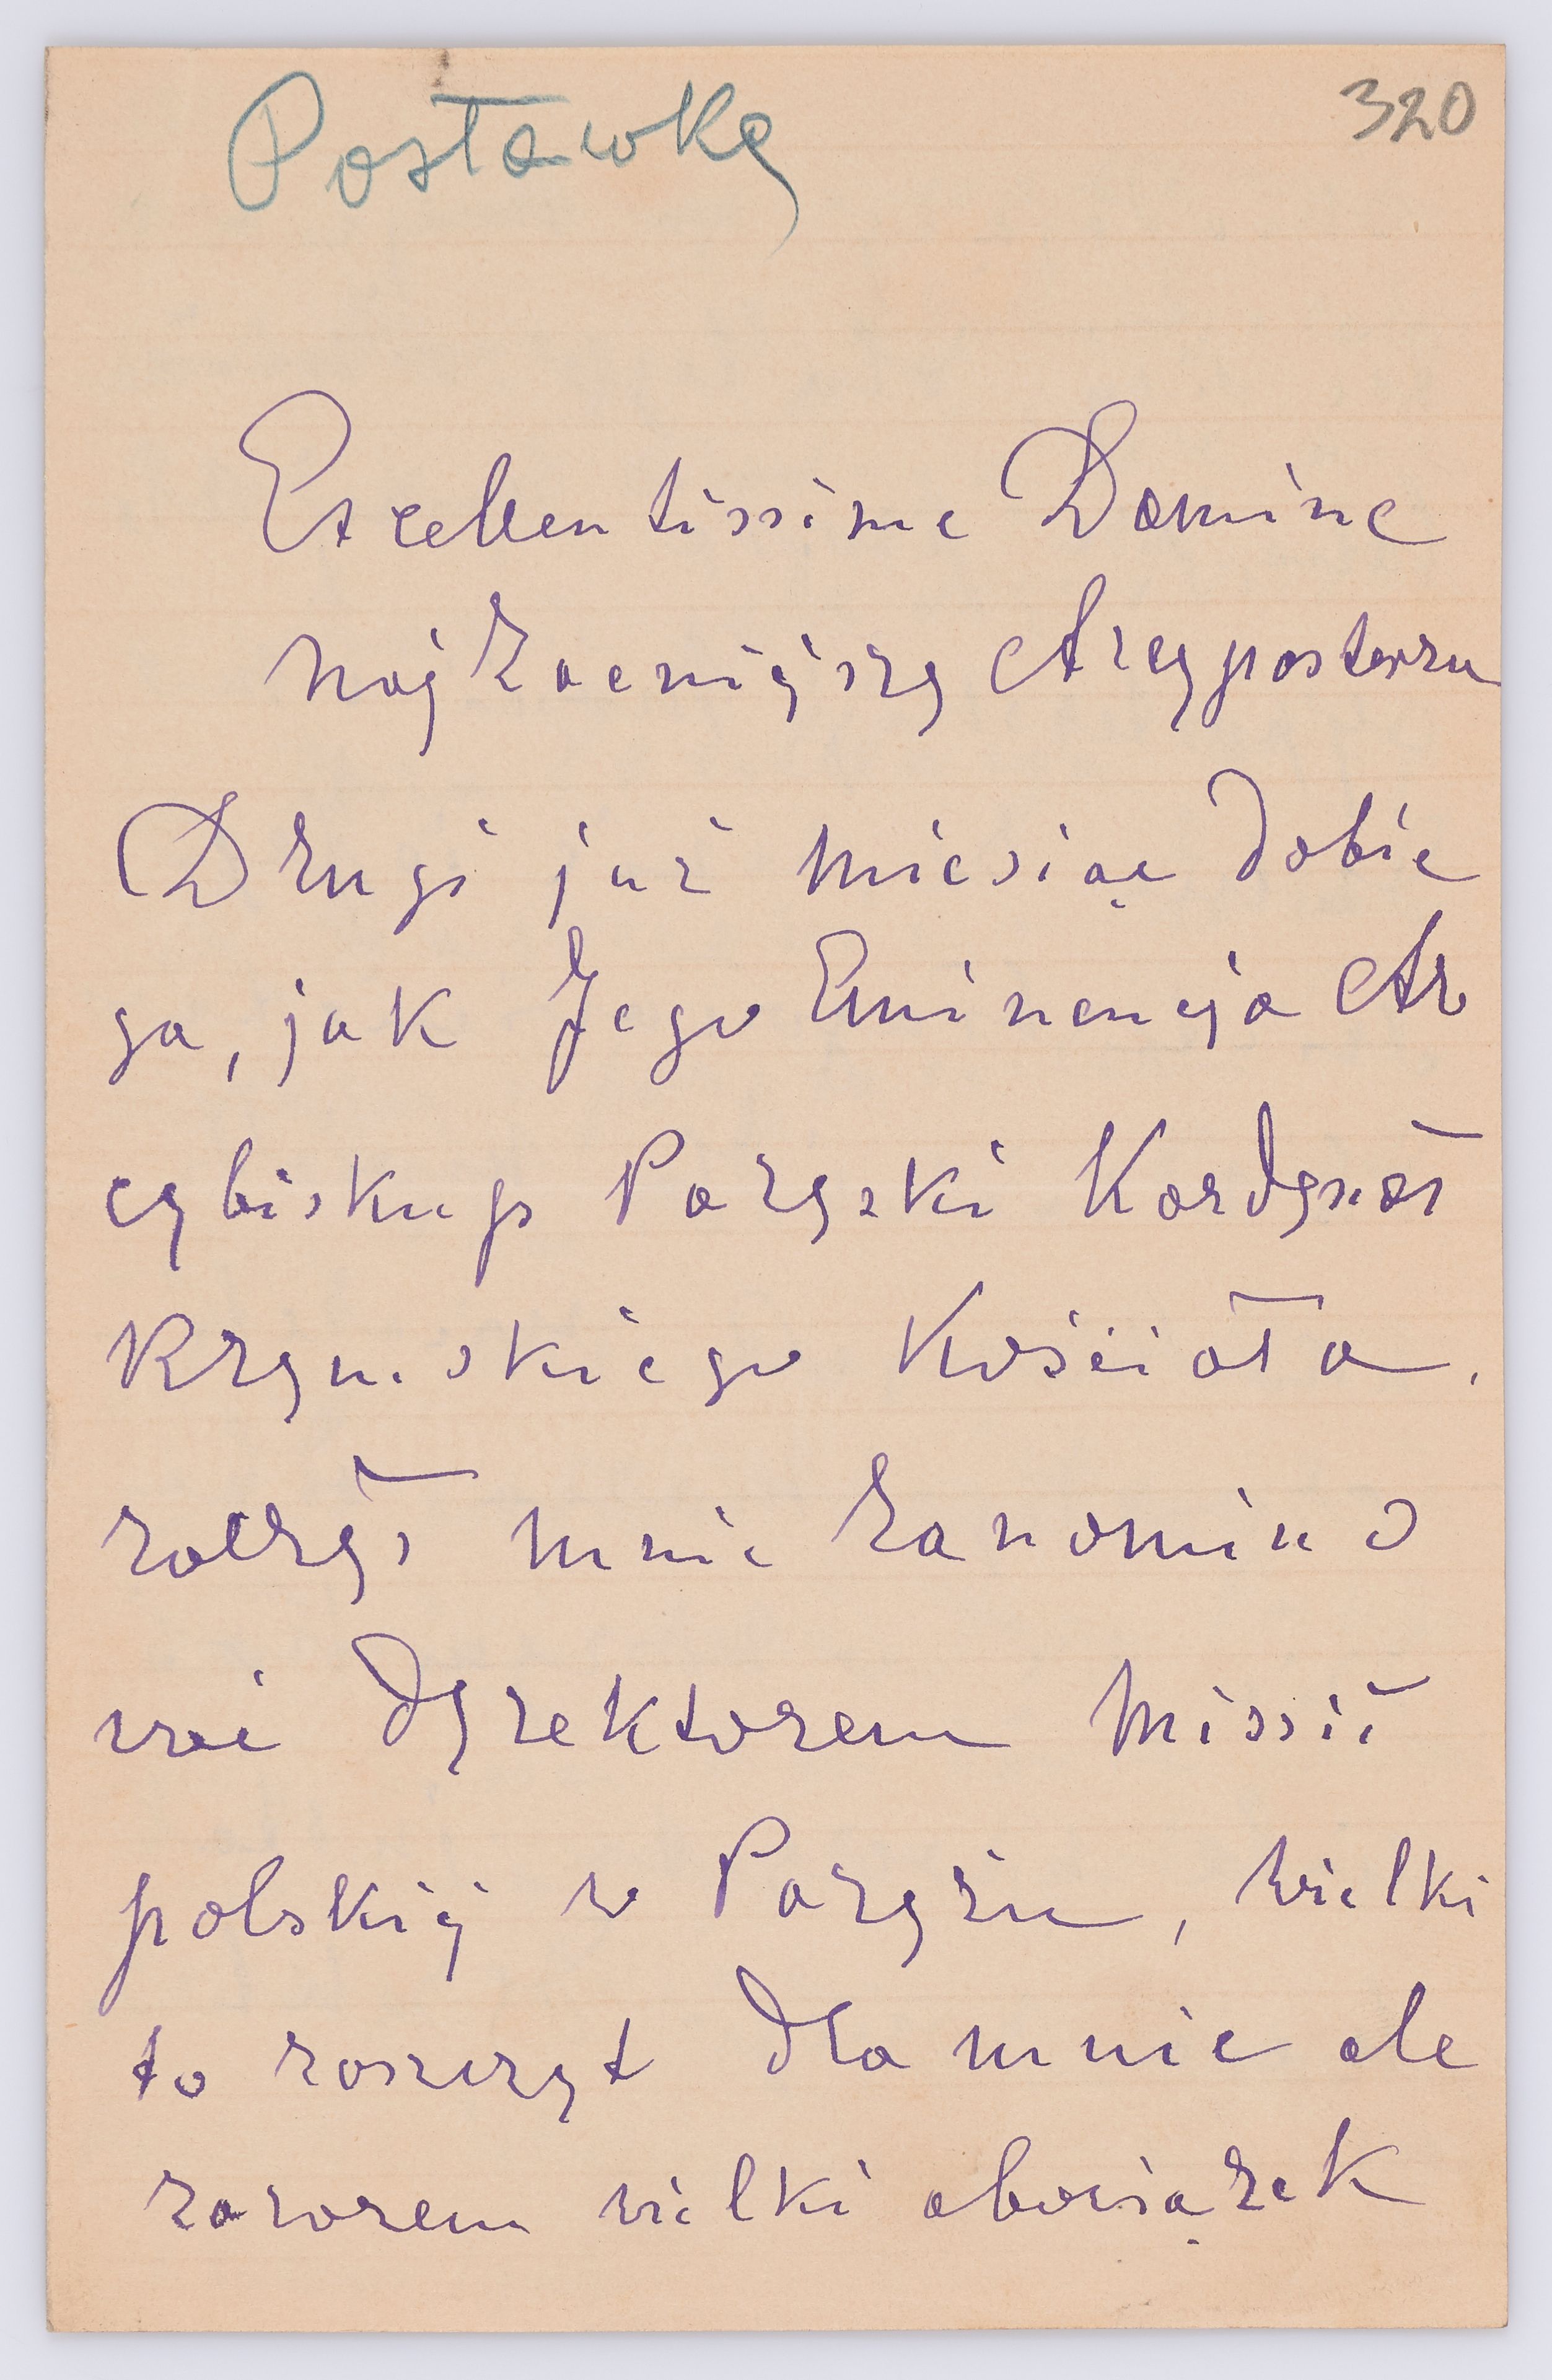 Postawka
320
Excellentissime Domine
najzacniejszy Arcypasterzu
Drugi już miesiąc dobie
ga, jak Jego Eminencja Ar
cybiskup Paryzki Kardynał
Rzymskiego Kościoła,
raczył mnie zamiano
wać dyrektorem Missii
polskiej w Paryżu, wielki
to zaszczyt dla mnie ale
zarazem wielki obowiązek